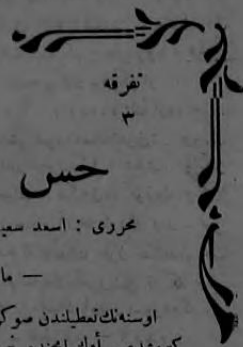 تفرقه
٣
حس
محرری : اسعد سعید
— ما
اوسنه‌نك تعطیلندن صوكر